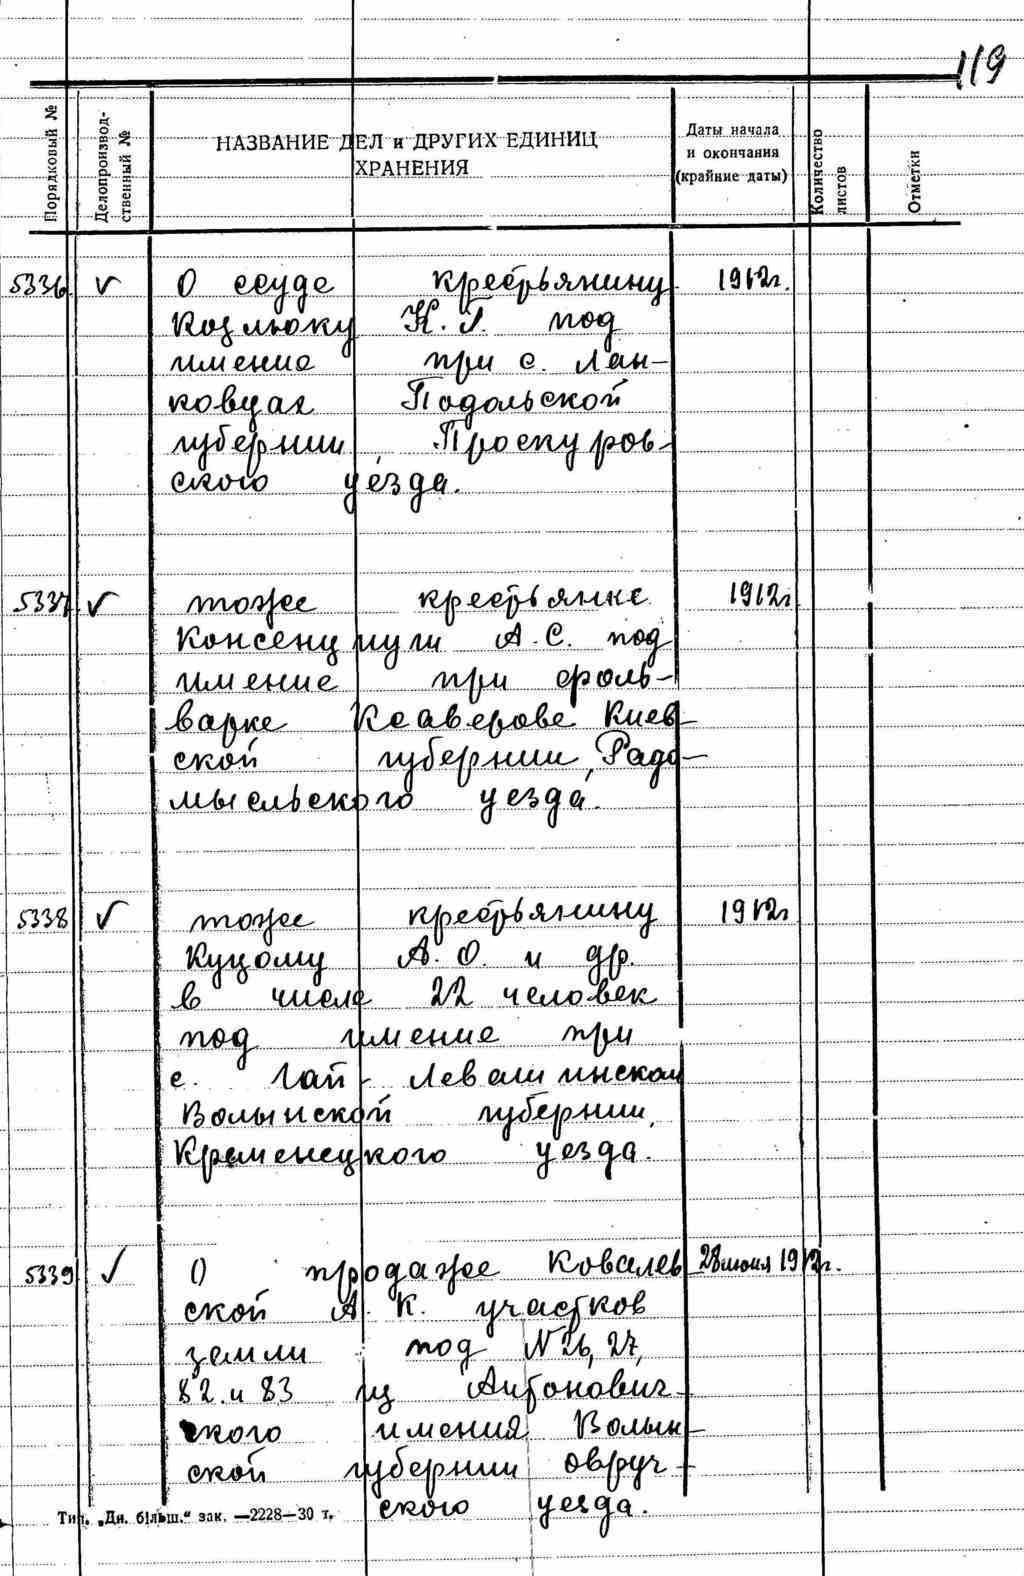 119
Порядковый №
Делопроизвод-
ственный №
НАЗВАНИЕ ДЕЛ и ДРУГИХ ЕДИНИЦ
ХРАНЕНИЯ
Даты начала
и окончания
(крайние даты)
Количество
листов
Отметки
5336 ✓ О ссуде крестьянину 1912г.
Козлюку К.Г. под
имение при с. Лан-
ковцах Подольской
губернии, Проскуров-
ского уезда.
5337 ✓ тоже крестьянке 1912г
А.С. под
имение при фоль-
варке Ксаверове Киев-
ской губернии, Радо-
мысльского уезда.
5338 ✓ тоже крестьянину 1912г
Куцому А.О. и др.
в числе 22 человек
под имение при
с. Гай-Левашинском
Волынской губернии,
Кременецкого уезда.
5339 ✓ О продаже Ковалев 28 июня 1912г.
ской А.К. участков
земли под N 26, 27,
82 и 83 из Антонович-
ского имения Волын-
ской губернии овруч-
ского уезда.
Тип. „Дн. більш.“ зак. —2228—30 т.